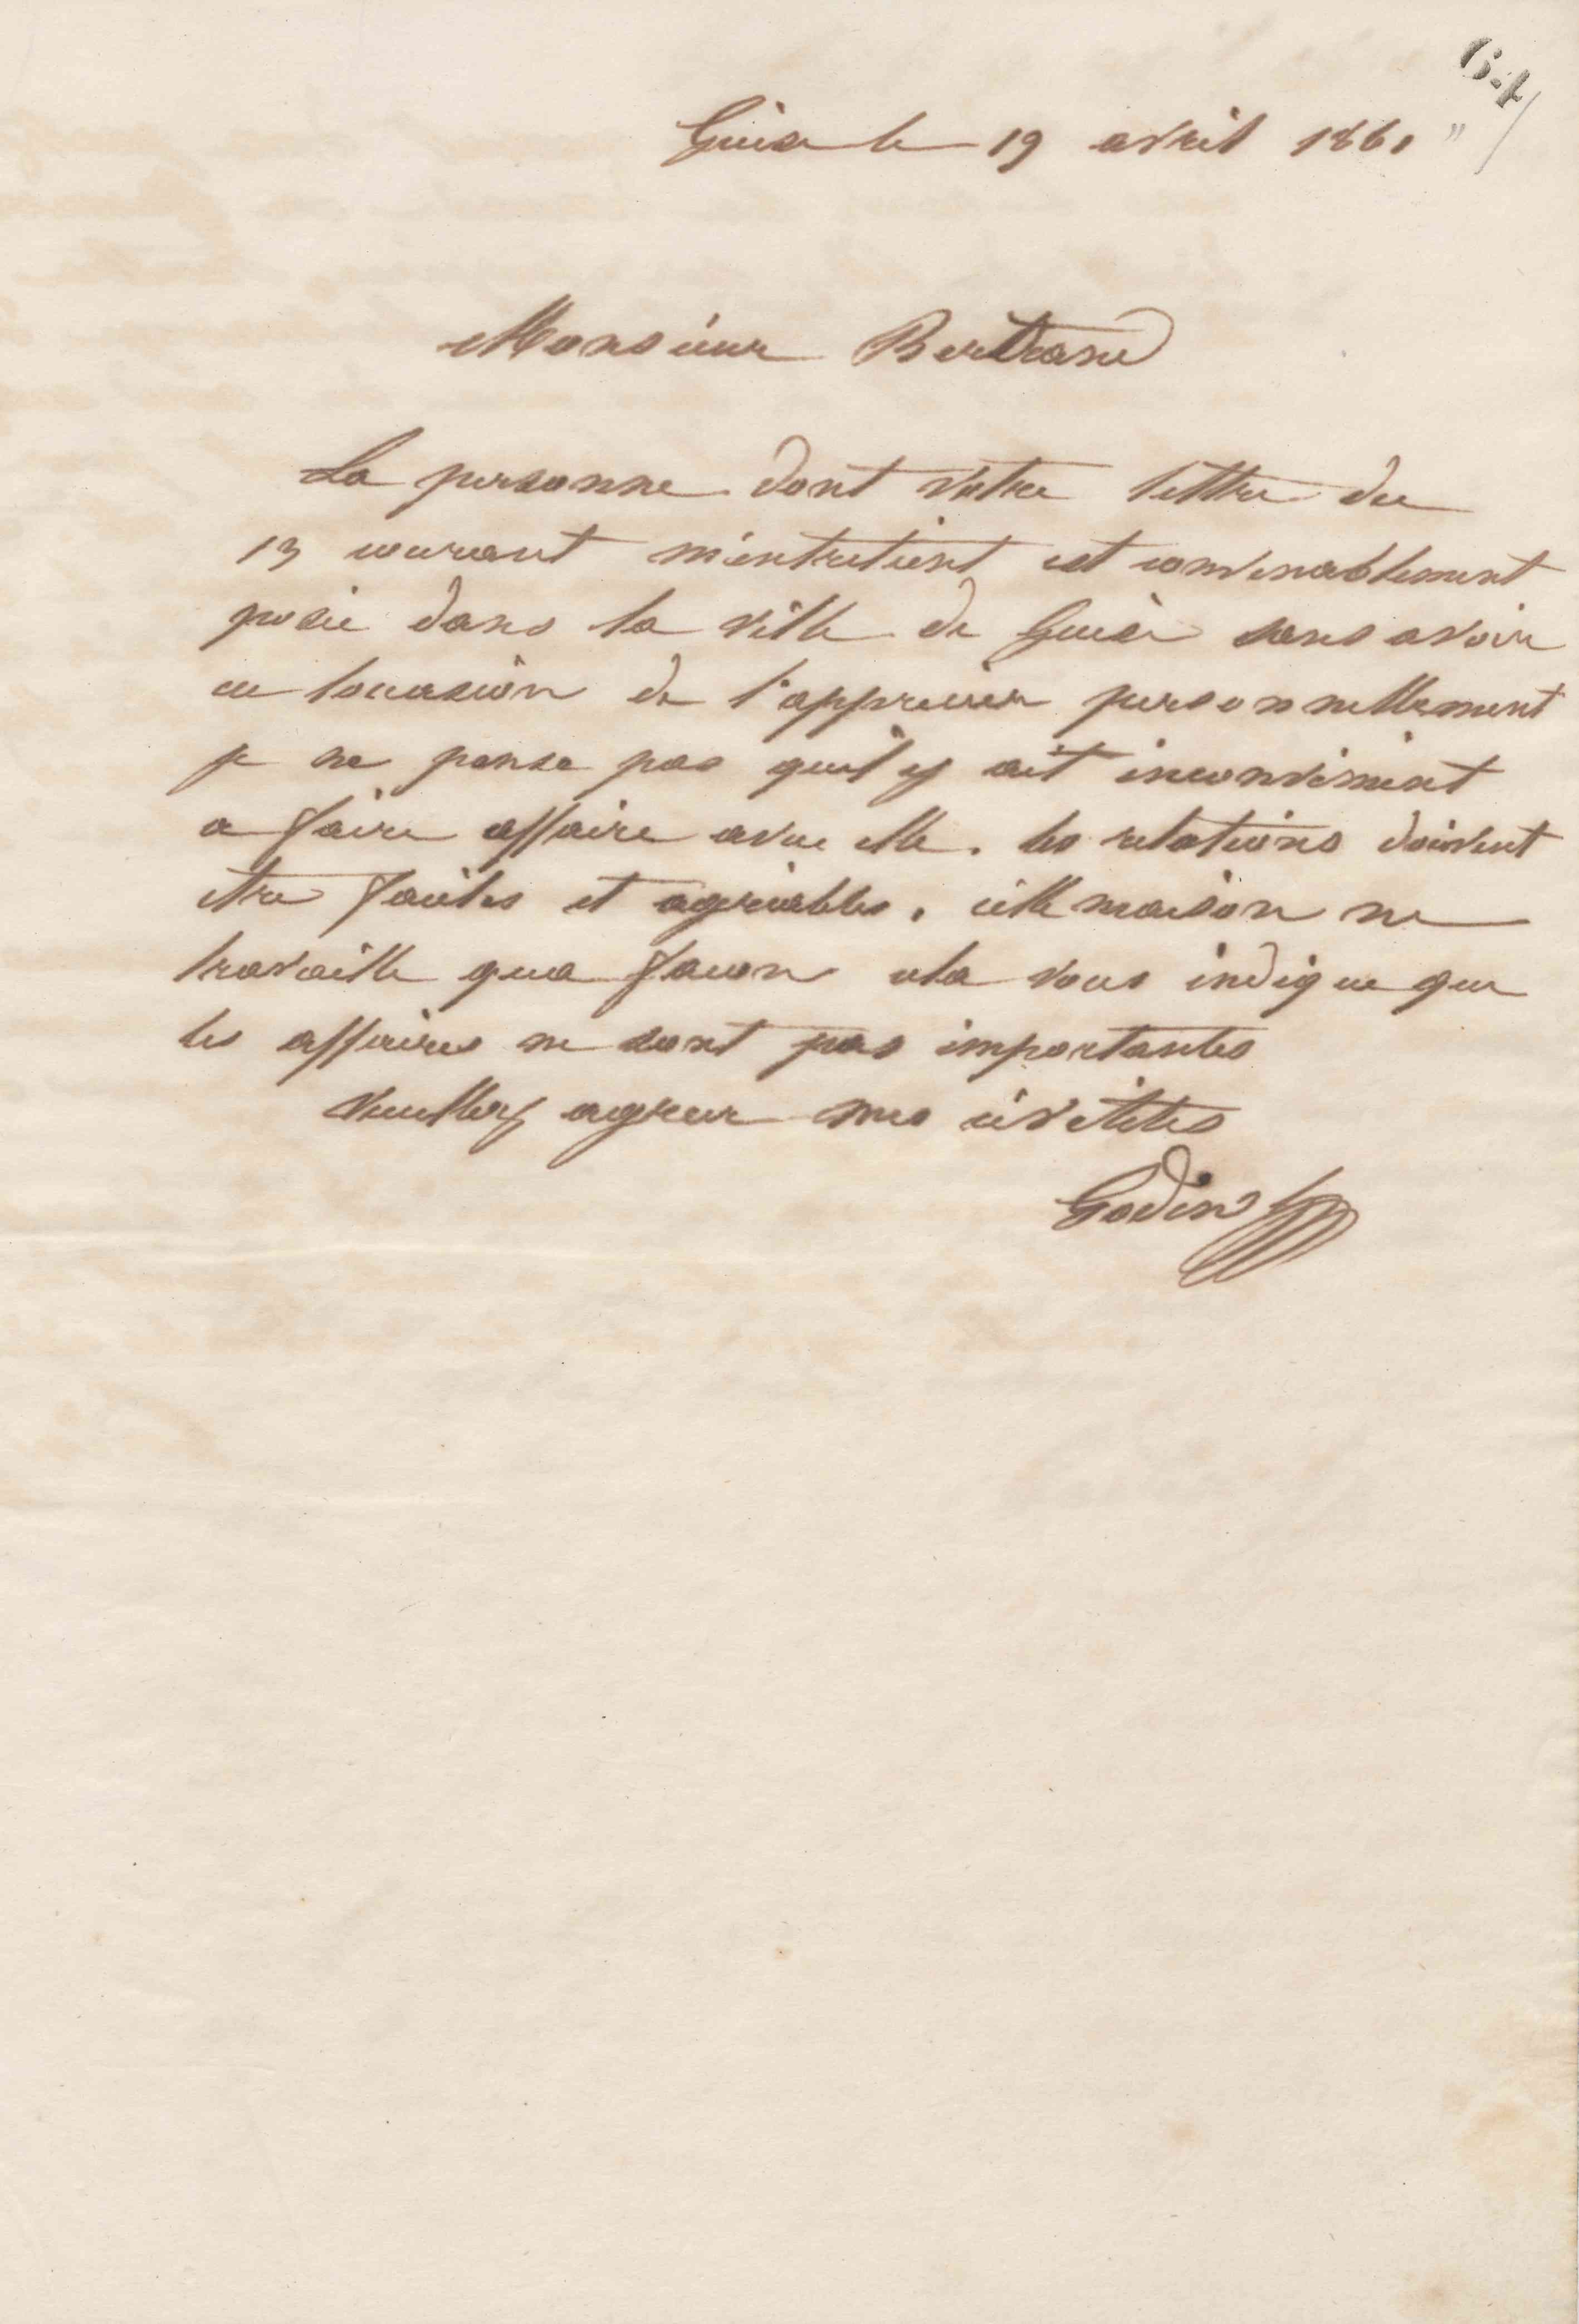 64
Guise le 19 avril 1861
Monsieur Bertrand
La personne dont votre lettre du
13 courant m'entretient est convenablement
posée dans la ville de Guise sans avoir
eu loccasion de l'apprecier personnellement
je ne pense pas quil y ait inconvenient
a faire affaire avec elle. les relations doivent
etre faciles et agréables. cette maison ne
travaille qua facon cela vous indique que
les affaires ne sont pas importantes
veuillez agreer mes civilités
Godin